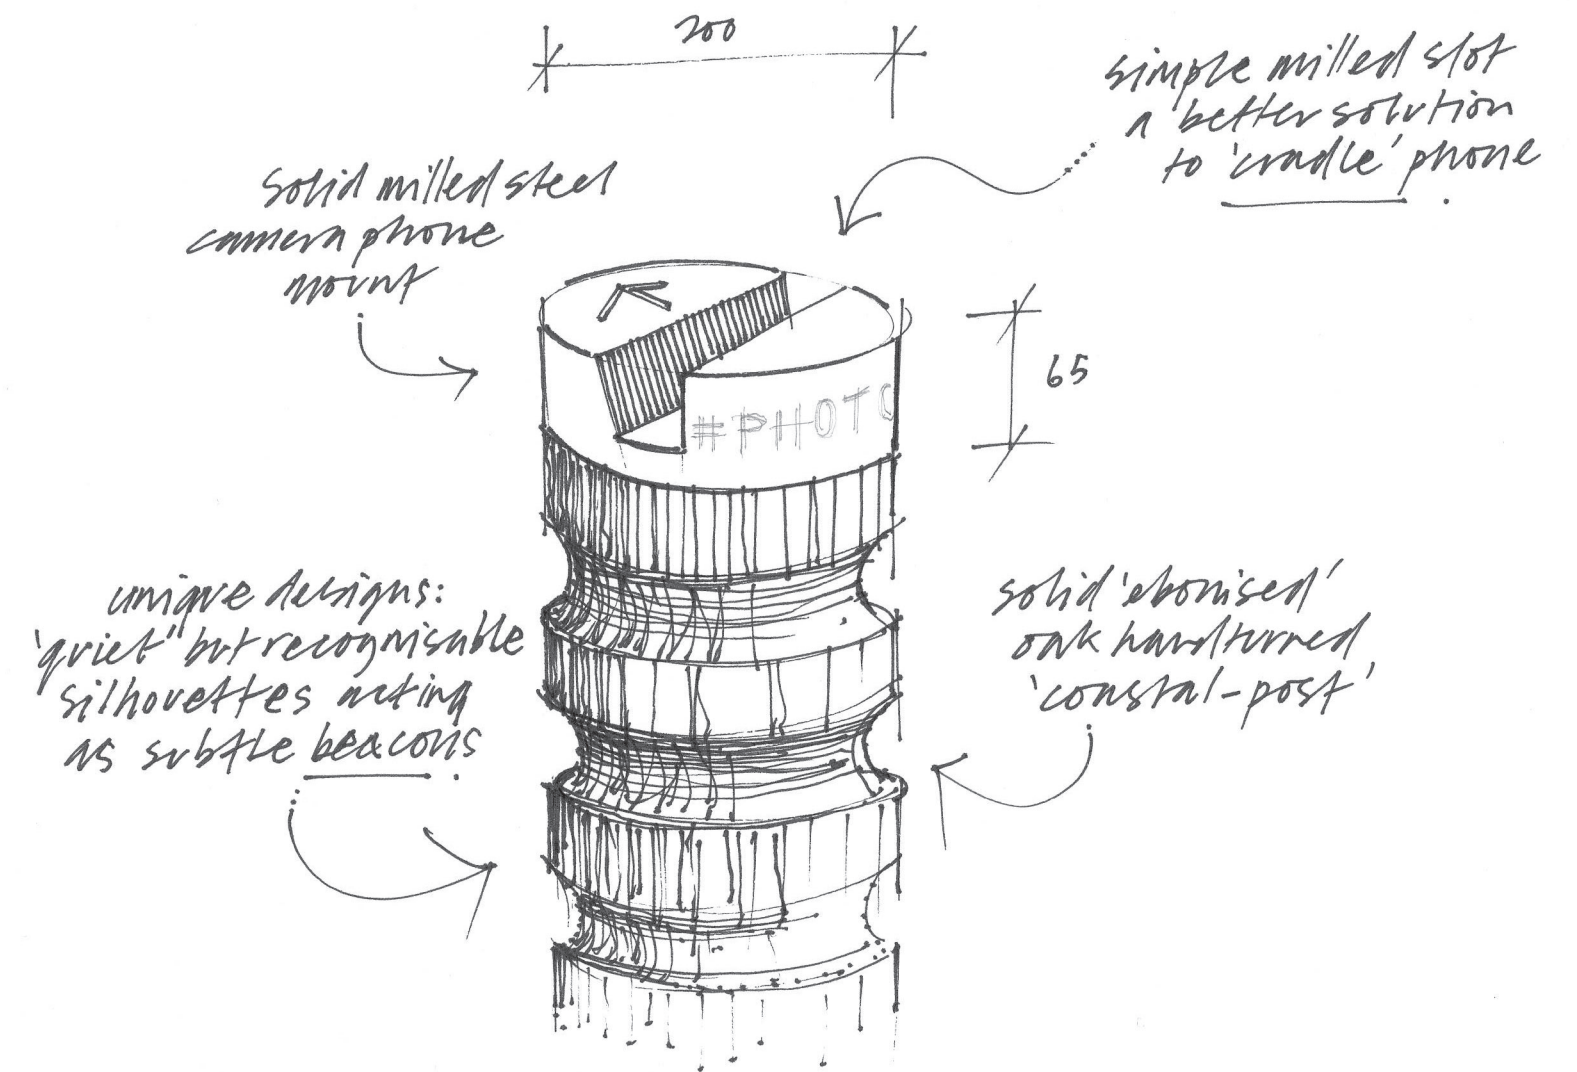 200
simple milled slot
a better solution
to 'cradle' phone
solid milled steel
camera phone
mount
65
#PHOTO
unique designs:
'quiet' but recognisable
silhouettes acting
as subtle beacons
solid 'ebonised'
oak handturned
'coastal-post'